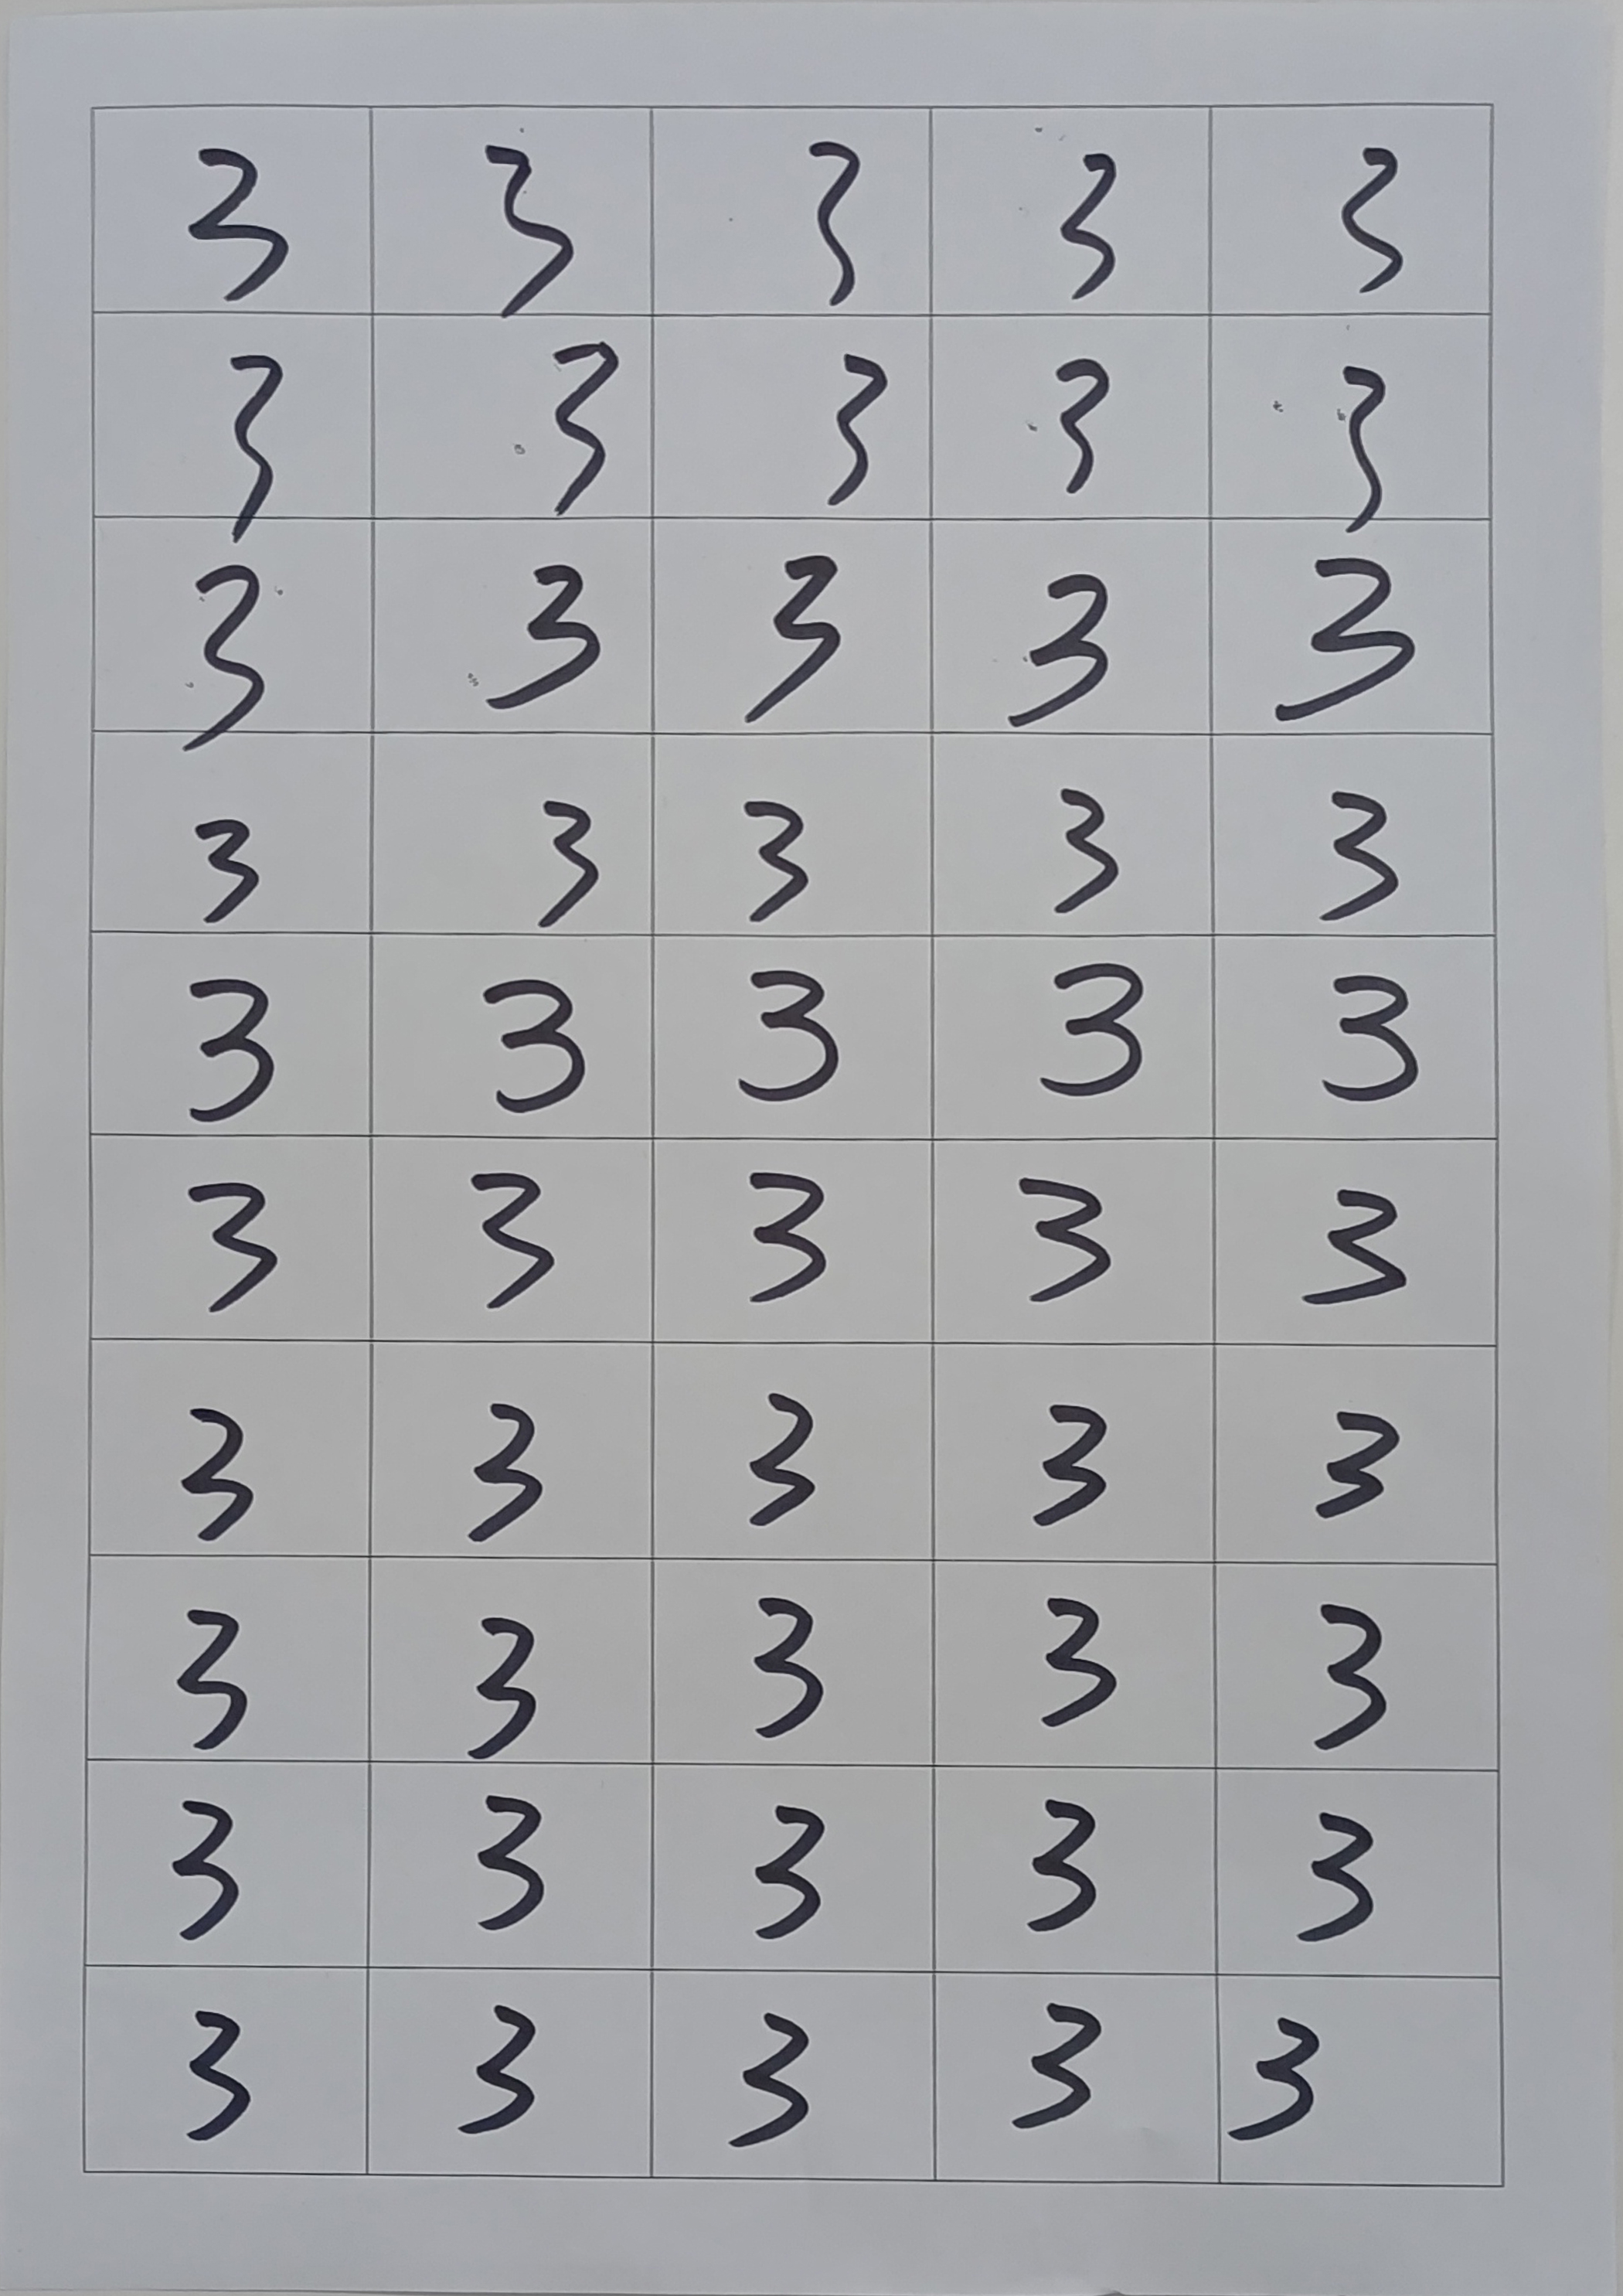 3 3 3 3 3
3 3 3 3 3
3 3 3 3 3
3 3 3 3 3
3 3 3 3 3
3 3 3 3 3
3 3 3 3 3
3 3 3 3 3
3 3 3 3 3
3 3 3 3 3